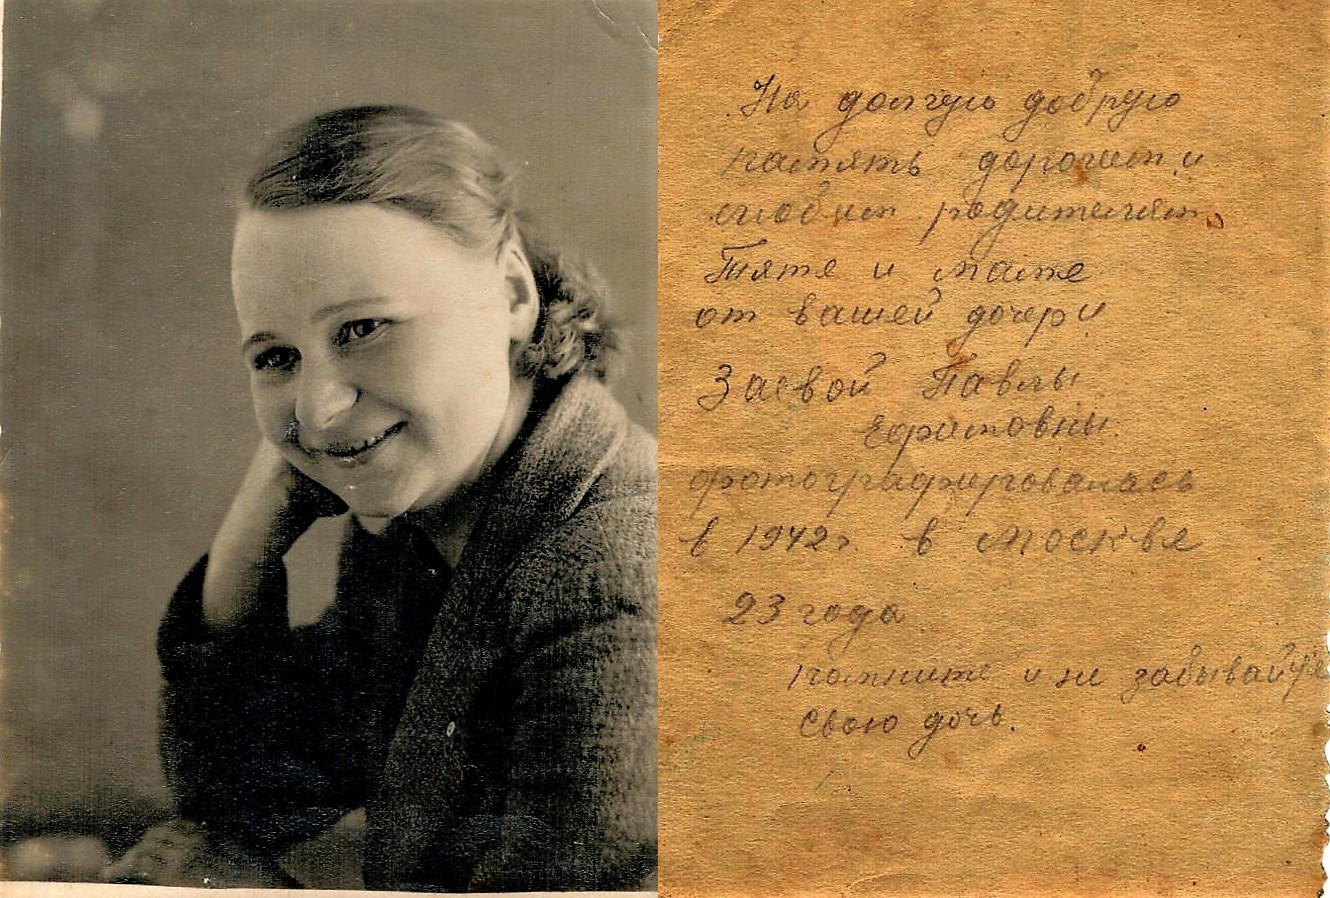 На долгую добрую
память дорогим и
любим родителям
Тяте и маме
от вашей дочери
Заевой Павлы
Ефимовны
фотографировалась
в 1942г. в Москве
23 года
помните и не забывайте
свою дочь.